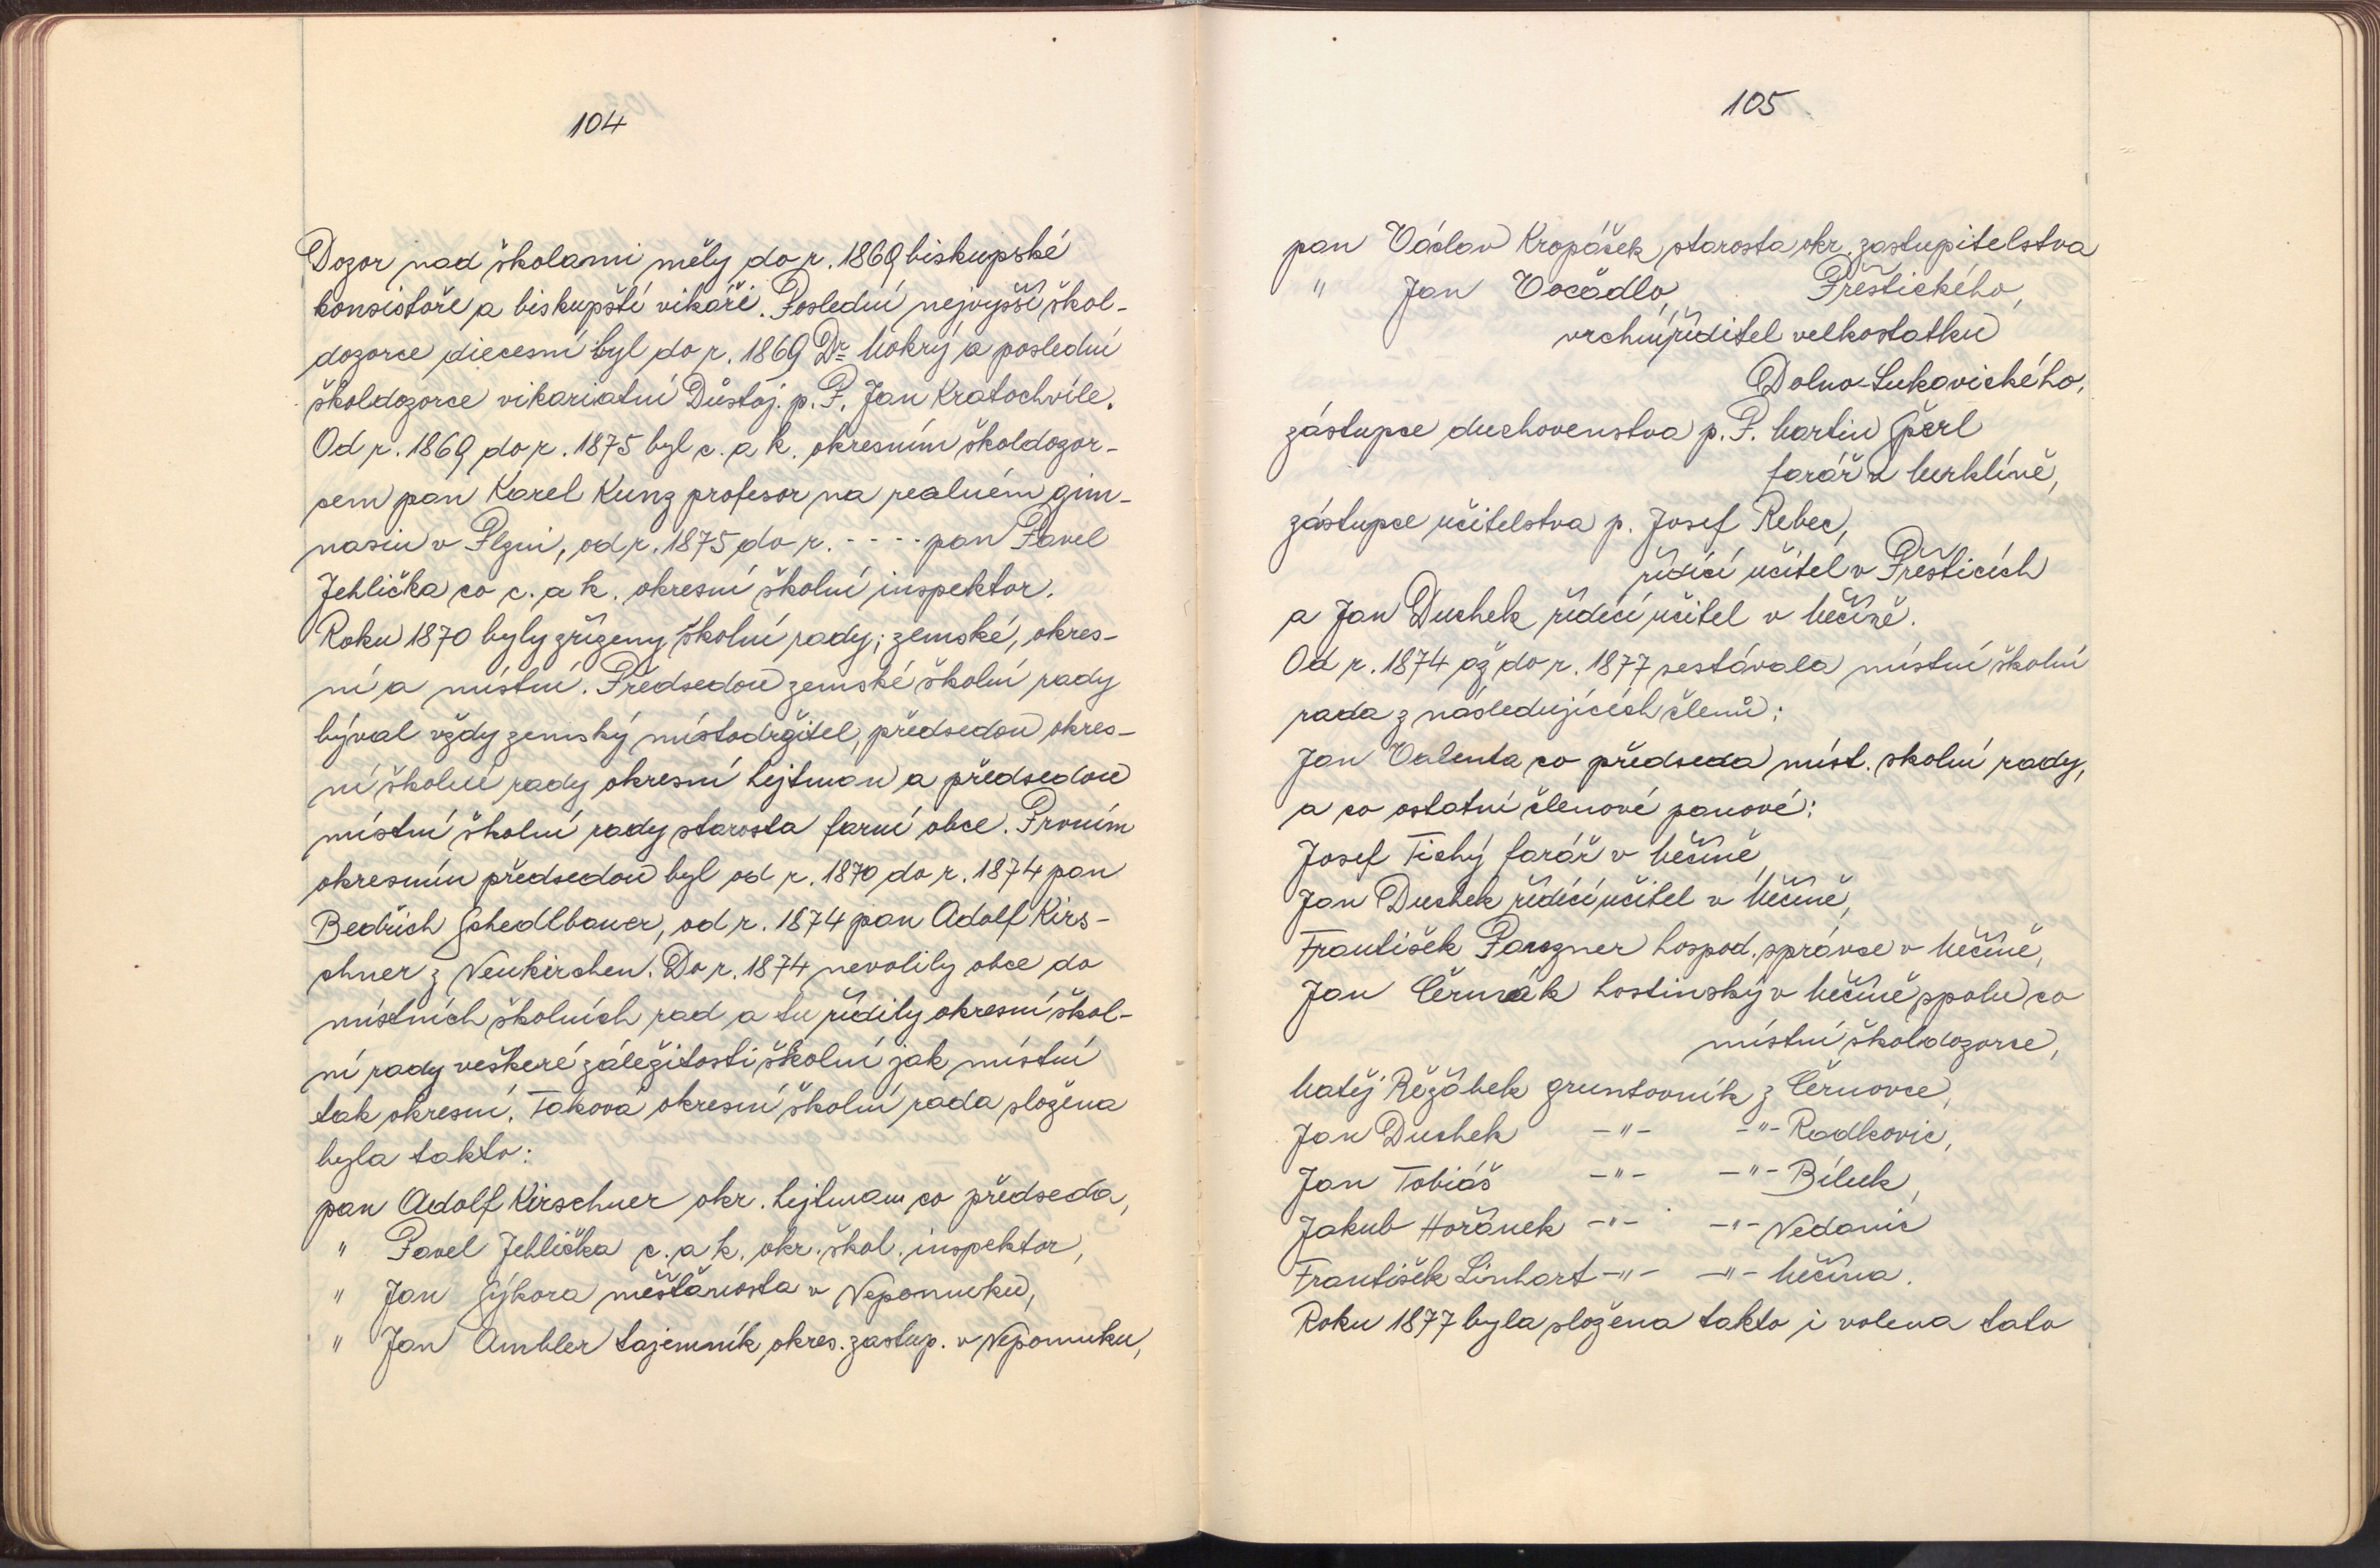 104
Dozor nad školami měly do r. 1869 biskupské
konsistoře a biskupští vikáři. Poslední nejvyšší škol-
dozorce diecesní byl do r. 1869 Dr Mokrý a poslední
školdozorce vikariatní Důstoj. p. P. Jan Kratochvíle.
Od r. 1869 do r. 1875 byl c. a k. okresním školdozor-
cem pan Karel Kunz profesor na realném gim-
nasiu v Plzni, od r. 1875 do r. - - - - pan Pavel
Jehlička co c. a k. okresní školní inspektor.
Roku 1870 byly zřízeny školní rady; zemské, okres-
ní a místní. Předsedou zemské školní rady
býval vždy zemský místodržitel, předsedou okres-
ní školní rady okresní hejtman a předsedou
místní školní rady starosta farní obce. Prvním
okresním předsedou byl od r. 1870 do r. 1874 pan
Bedřich Schedlbauer, od r. 1874 pan Adolf Kirs-
chner z Neukirchen. Do r. 1874 nevolily obce do
místních školních rad a tu řídily okresní škol-
ní rady veškeré záležitosti školní jak místní
tak okresní. Taková okresní školní rada složena
byla takto:
pan Adolf Kirschner okr. hejtmam co předseda,
" Pavel Jehlička c. a k. okr. škol. inspektor,
" Jan Sýkora měšťanosta v Nepomuku,
" Jan Ambler tajemník okres. zastup. v Nepomuku,
105
pan Václav Kropáček starosta okr. zastupitelstva
" Jan Vocádlo, Přeštického,
vrchní řiditel velkostatku
Dolno-Lukavického,
zástupce duchovenstva p. P. Martin Šperl
farář v Merklíně,
zástupce učitelstva p. Josef Rebec,
řídící učitel v Přešticích
a Jan Duchek řídící učitel v Měčíně.
Od r. 1874 až do r. 1877 sestávala místní školní
rada z následujících členů:
Jan Valenta co předseda míst. skolní rady,
a co ostatní členové panové:
Josef Tichý farář v Měčíně,
Jan Duchek řídící učitel v Měčíně,
František Panzner hospod. správce v Měčíně,
Jan Čermák hostinský v Měčíně spolu co
místní školdozorce,
Matěj Řežábek gruntovník z Černovce,
Jan Duchek -"- -"- Radkovic,
Jan Tobiáš -"- -"- Bíluk,
Jakub Hořánek -"- -"- Nedanic
František Linhart -"- -"- Měčína.
Roku 1877 byla složena takto i volena tato